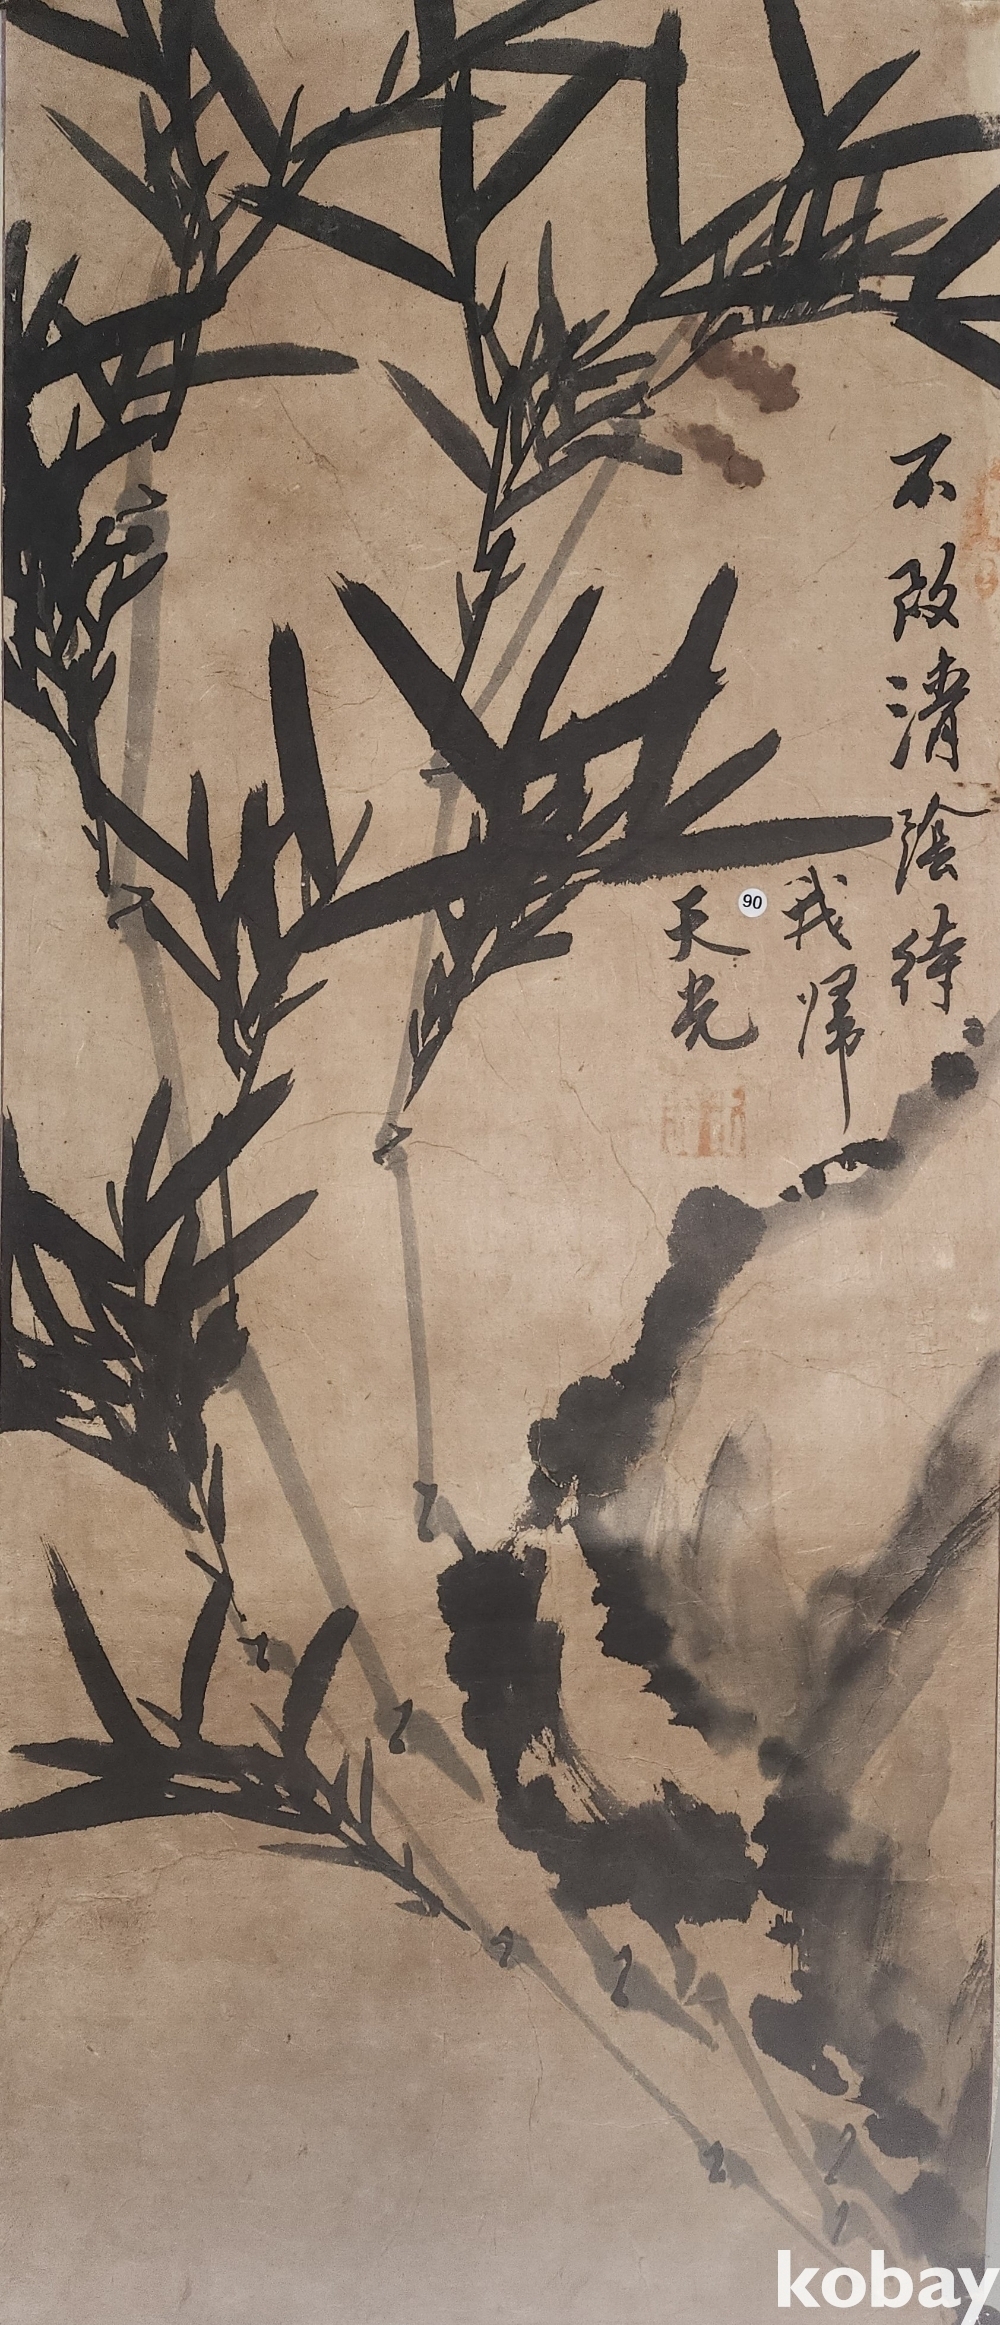 不改清陰待
我歸
天光
90
kobay